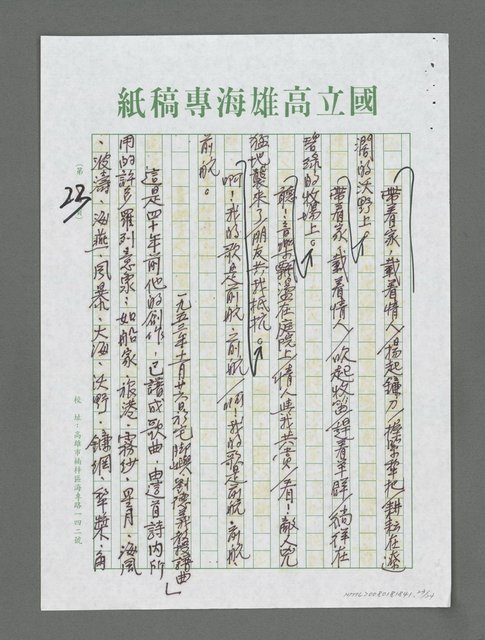 國立高雄海專稿紙
帶着家、載着情人/揚起鐮刀/操縱犂把/耕耘在遼
濶的沃野上。
帶着家、載着情人/吹起牧笛/趕着羊群/徜徉在
碧綠的牧場上。
聽!音樂飄盪在庭院上/情人與我共賞/看!敵人兇
猛地襲來了/朋友共我抵抗。
啊!我的歌是前航、前航/啊!我的歌是前航、前航
前航。
一九五三年十一月廿六日
教授譜曲」
這是四十年前他的創作,已譜成歌曲,這首詩內所
用的許多羅列意象:如船家、港、霧紗、單月、海風
、波濤、海燕、風暴、大海、沃野、鐮、犂、
(第
23
校址:高雄市楠梓區海專路一四二號
NMTL20080181841